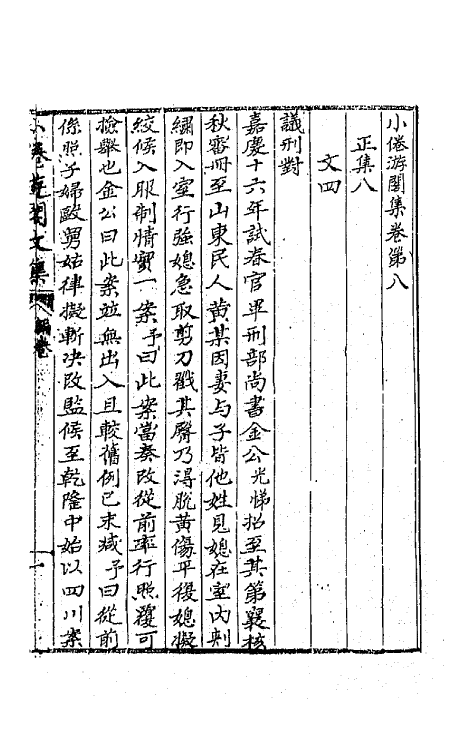 小倦游閣集卷第八
正集八
文四
議刑對
嘉慶十六年試春官畢刑部尚書金公光悌招至其第襄核
秋審冊至山東民人黃某因妻与子皆他姓見媳在室內刺
繡即入室行強媳急取剪刀戳其臀乃得脫黃傷平復媳擬
絞候入服制情實一案予曰此案當奏改從前率行照覆可
撿舉也金公曰此案並無出入且較舊例已末減予曰從前
係照子婦毆舅姑律擬斬决改監候至乾隆中始以四川案
小倦游閣文集
卷
一